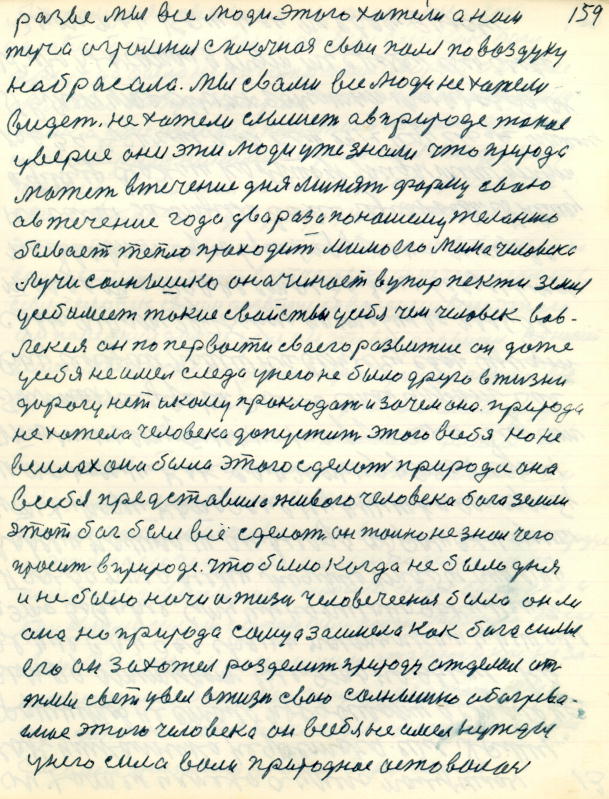 разве мы все люди этого хотели а нам 159
туча огромная сплочная свои поля по воздуху
набрасала. мы свами все люди не хотели
видет. не хотели слышет а в природе такие
уверие они эти люди уже знали что природа
может втечение дня минят форму свою
а втечение года два раза по нашему желанию
бывает тепло проходит мимо его мима человека
лучи солнышко она чинает вупор пекти земля
усебя имеет такие свайства усебя чем человек вов-
лекся он по первости сваего развитие он даже
усебя не имел следа унего не было друго в жизни
дорогу нет и кому прокладат и зачем она. природа
не хотела человека допустит этого всебя но не
всилах она была этого сделат природа она
всебя представила живого человека бога земли
этот бог был всё сделат он толко не знал чего
просит в природе. что было когда не было дня
и не было ночи а жизн человеческая была он ли
она но природа саму а зашлела как бога силы
его он захотел разделит природу отделил от
тмы свет увел в жизн сваю солнышко обогрева-
ние этого человека он всебя не имел нужды
унего сила воли природное оставалас